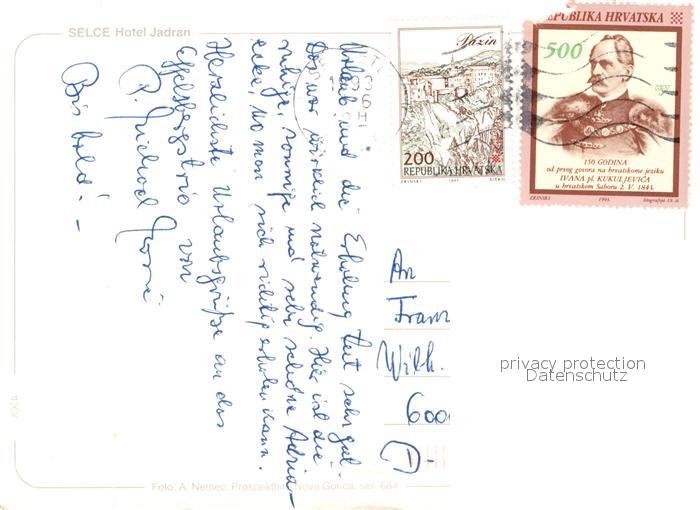 SELCE Hotel Jadran
Urlaub und die Erholung tut sehr gut.
Das war wirklich notwendig. Hier ist die
ruhige, sonnige und sehr schöne Adria-
ecke, wo man sich richtig erholen kann.
Herzlichste Urlaubsgrüße an das
von
P. Michael
Bis bald! –
An
Franz
Wilh.
600
A
Pazin
200
REPUBLIKA HRVATSKA
ZRINSKI 1993 SIŠKO
REPUBLIKA HRVATSKA
500
150 GODINA
od prvog govora na hrvatskome jeziku
IVANA pl. KUKULJEVIĆA
u hrvatskom Saboru 2. V. 1843.
ZRINSKI 1993.
privacy protection
Datenschutz
Foto: A. Nemec, Prospektbiro Nova Gorica, ser. 684